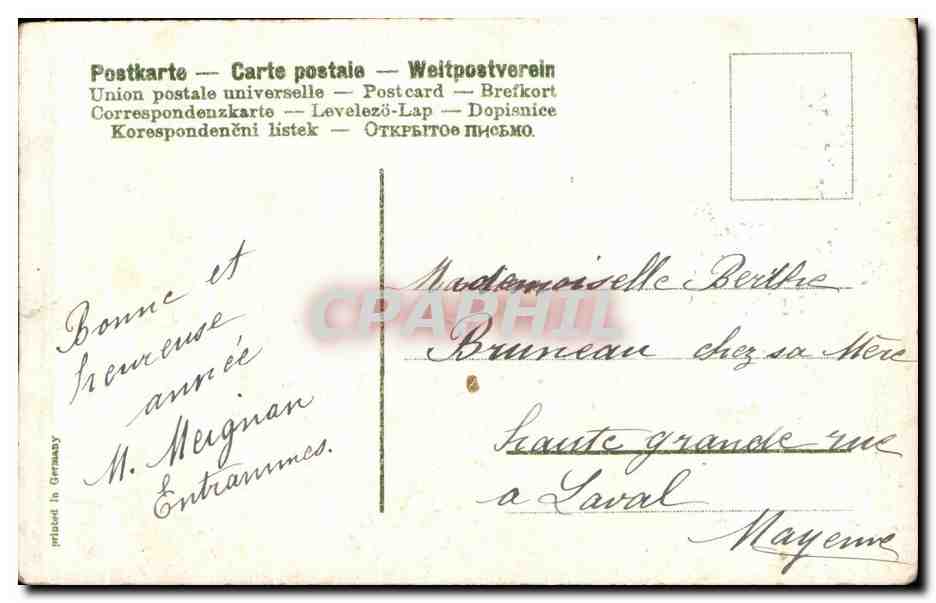 Postkarte — Carte postale — Weltpostverein
Union postale universelle — Postcard — Brefkort
Correspondenzkarte — Levelező-Lap — Dopisnice
Korespondenčni listek — Открытое письмо.
Bonne et
heureuse
année
M. Meignan
Entrammes.
Mademoiselle Berthe
Bruneau chez sa Mère
haute grande rue
a Laval
Mayenne
printed in Germany
CPAPHIL